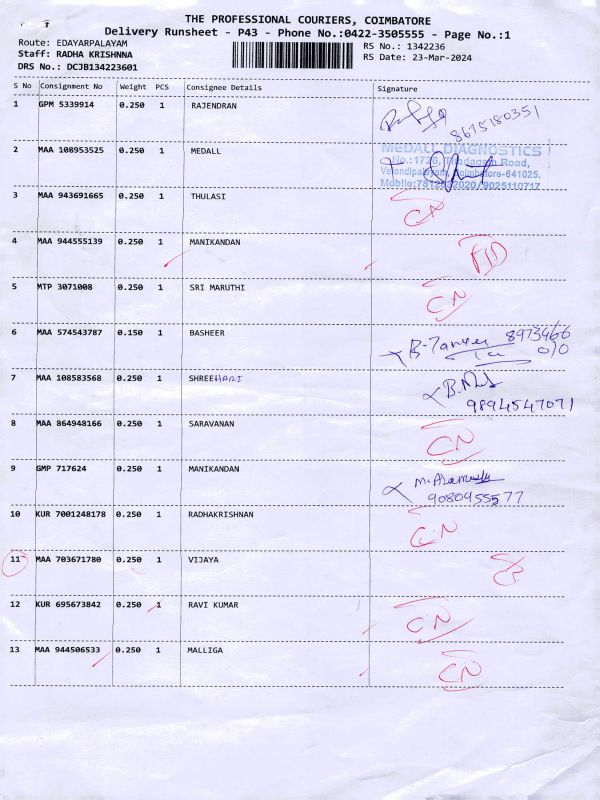 THE PROFESSIONAL COURIERS, COIMBATORE
Delivery Runsheet - P43 - Phone No.:0422-3505555 - Page No.:1
Route: EDAYARPALAYAM
Staff: RADHA KRISHNNA
DRS No.: DCJB134223601
RS No.: 1342236
RS Date: 23-Mar-2024
S No Consignment No Weight PCS Consignee Details Signature
1 GPM 5339914 0.250 1 RAJENDRAN
8675180351
2 MAA 108953525 0.250 1 MEDALL
MEDALL DIAGNOSTICS
No.: 1726, Thadagam Road,
Velandipalayam, Coimbatore-641025.
3 MAA 943691665 0.250 1 THULASI CN
4 MAA 944555139 0.250 1 MANIKANDAN
5 MTP 3071008 0.250 1 SRI MARUTHI CN
6 MAA 574543787 0.150 1 BASHEER
8973466
010
7 MAA 108583568 0.250 1 SHREEHARI
9894547071
8 MAA 864948166 0.250 1 SARAVANAN CN
9 GMP 717624 0.250 1 MANIKANDAN
9080955577
10 KUR 7001248178 0.250 1 RADHAKRISHNAN CN
11 MAA 703671780 0.250 1 VIJAYA
12 KUR 695673842 0.250 1 RAVI KUMAR CN
13 MAA 944506533 0.250 1 MALLIGA CN